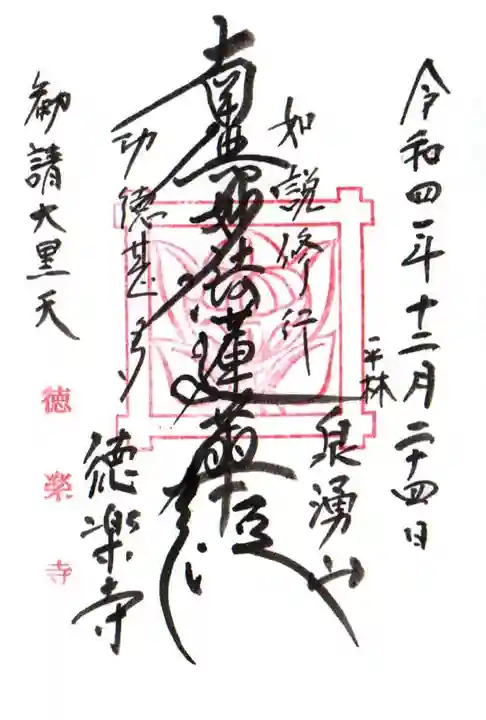 令和四年十二月二十四日
平林
泉湧山
如説修行
南無妙法蓮華経
功徳甚多
徳楽寺
勧請大黒天
徳楽寺